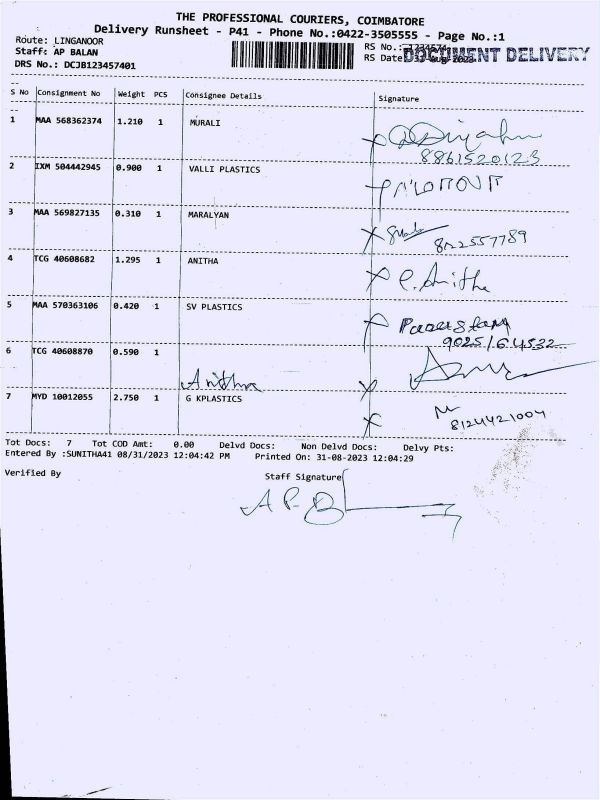 THE PROFESSIONAL COURIERS, COIMBATORE
Delivery Runsheet - P41 - Phone No.:0422-3505555 - Page No.:1
Route: LINGANOOR
RS No.:
Staff: AP BALAN
RS Date: 31-Aug-2023
DOCUMENT DELIVERY
DRS No.: DCJB123457401
S No Consignment No Weight PCS Consignee Details Signature
1 MAA 568362374 1.210 1 MURALI
8861520123
2 IXM 504442945 0.900 1 VALLI PLASTICS
3 MAA 569827135 0.310 1 MARALYAN
8122557789
4 TCG 40608682 1.295 1 ANITHA
C. Anitha
5 MAA 570363106 0.420 1 SV PLASTICS
9025164532
6 TCG 40608870 0.590 1
Anitha
7 MYD 10012055 2.750 1 G KPLASTICS
8124421004
Tot Docs: 7 Tot COD Amt: 0.00 Delvd Docs: Non Delvd Docs: Delvy Pts:
Entered By :SUNITHA41 08/31/2023 12:04:42 PM Printed On: 31-08-2023 12:04:29
Verified By
Staff Signature